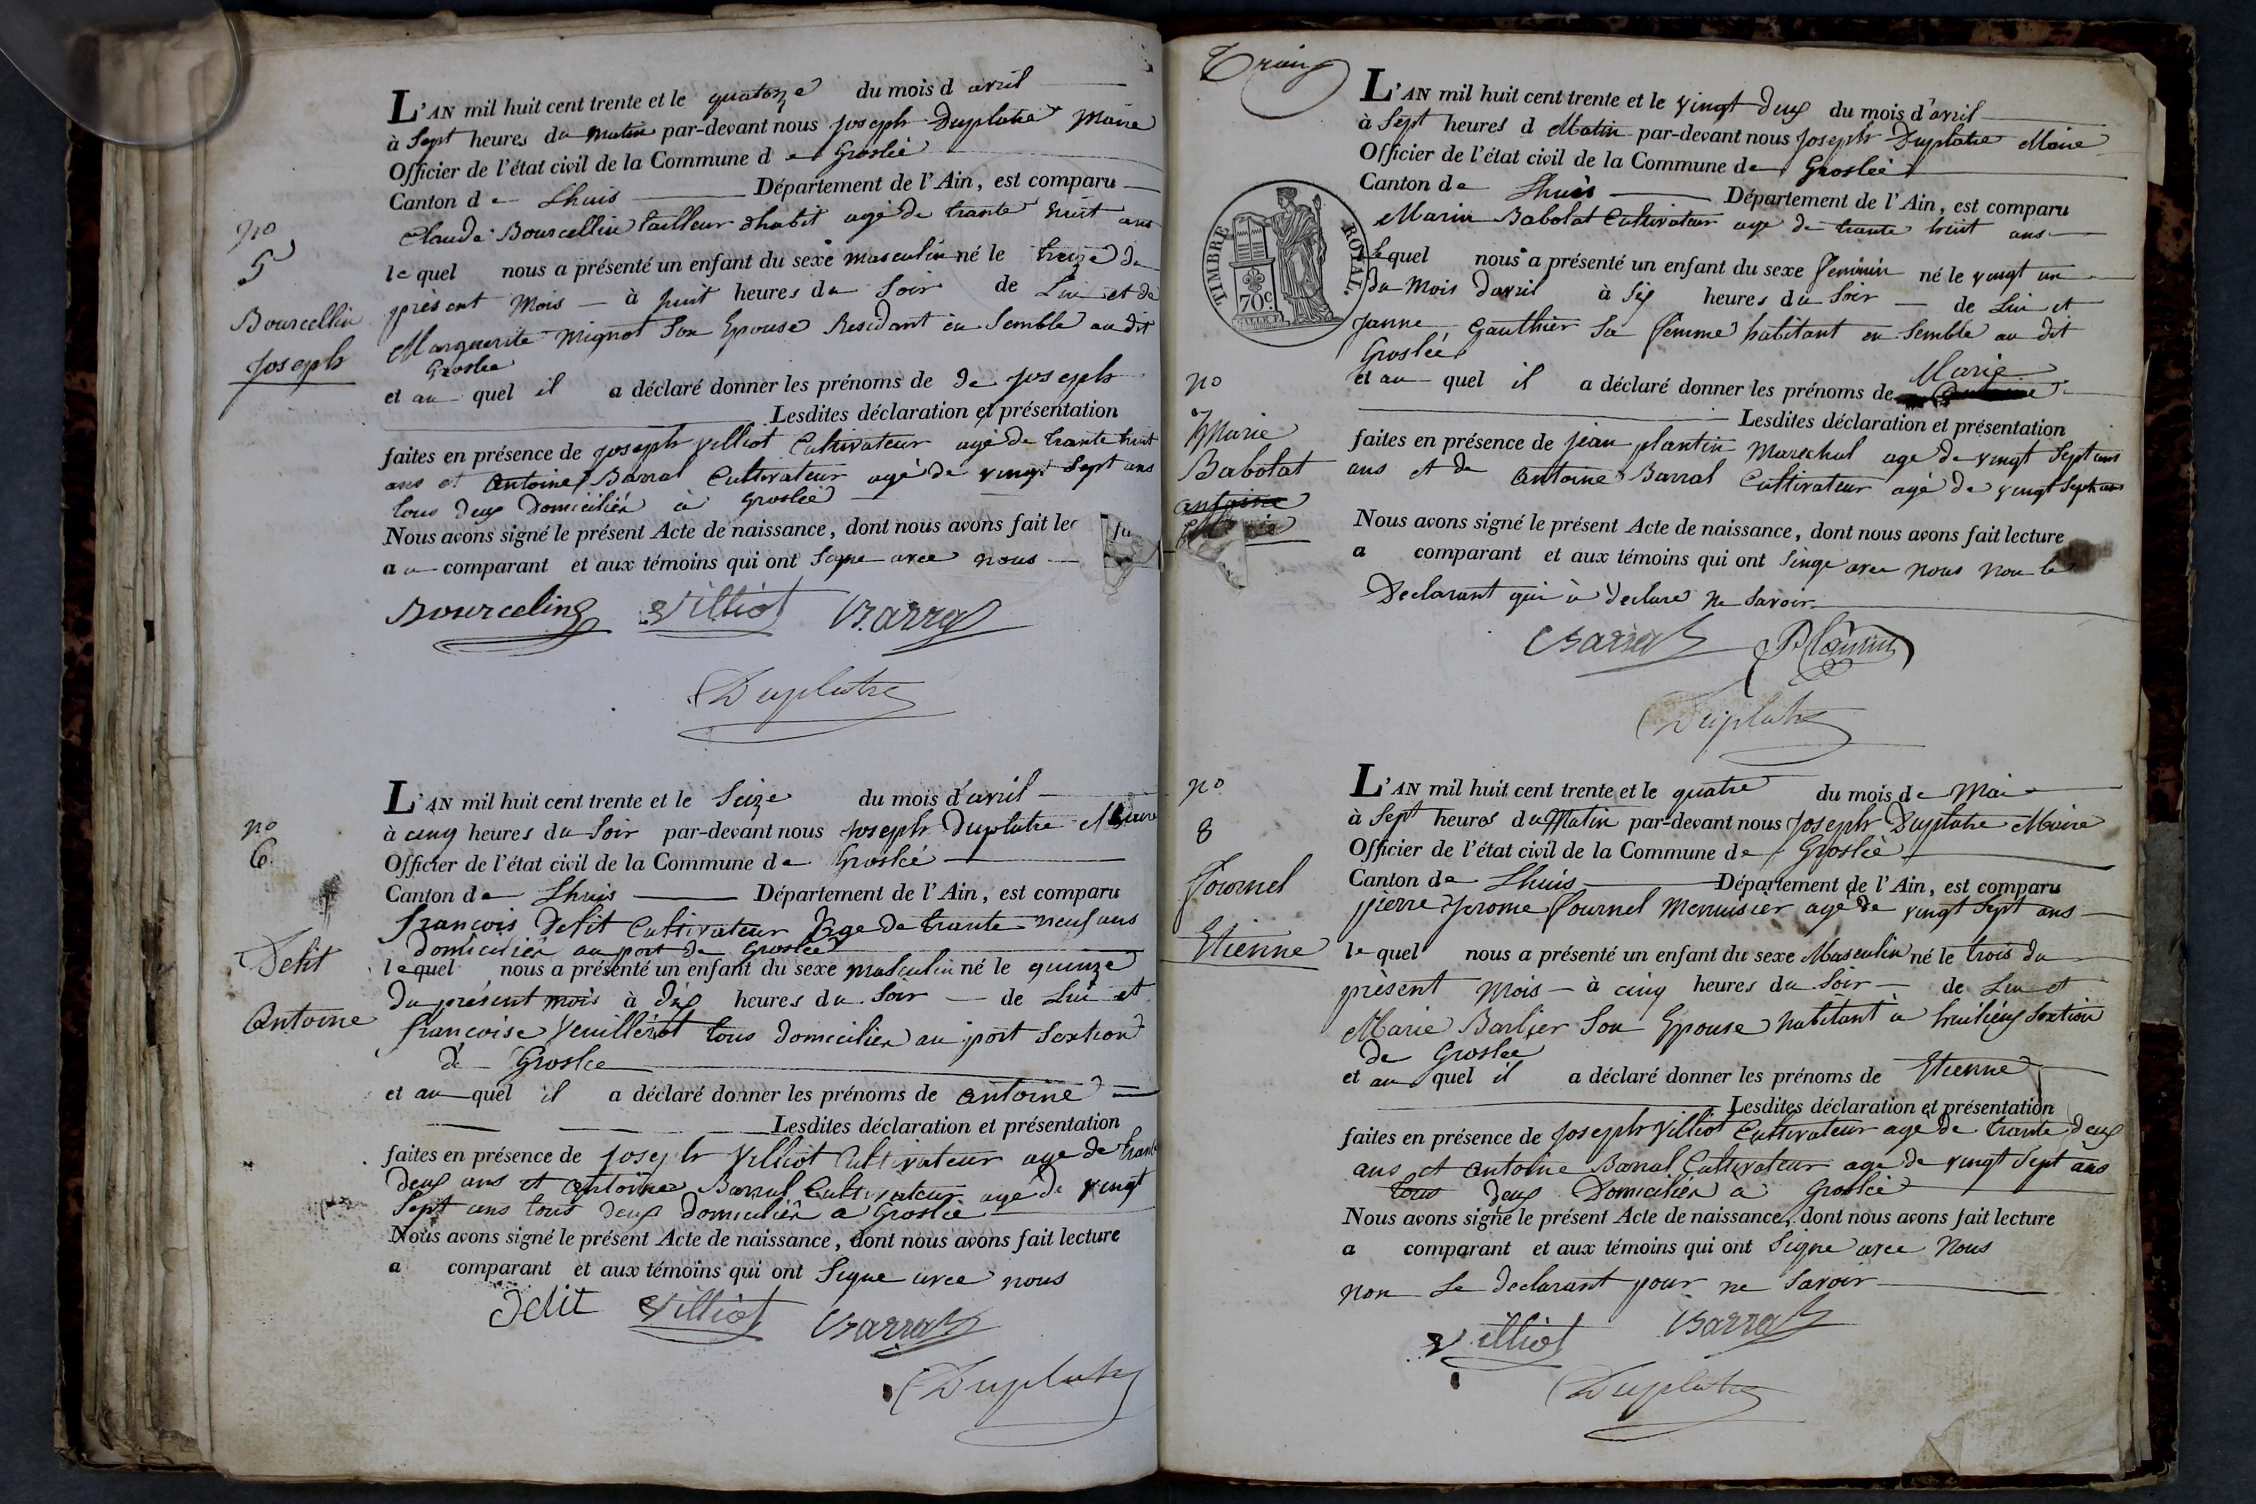 L'AN mil huit cent trente et le quatorze du mois d avril
à Sept heures du matin par-devant nous joseph Duplatre Maire
Officier de l'état civil de la Commune de Groslée
Canton de Lhuis Département de l'Ain, est comparu
Claude Bourcellin tailleur dhabit agé de trante huit ans
le quel nous a présenté un enfant du sexe masculin né le treize du
présent Mois à huit heures du Soir de Lui et de
Marguerite Mignot Son Epouse Residant en Semble au dit
Groslée
et au quel il a déclaré donner les prénoms de de joseph
Lesdites déclaration et présentation
faites en présence de joseph Villiot Cultivateur agé de trante huit
ans et Antoine Barral Cultivateur agé de vingt Sept ans
tous deux Domiciliés à Groslée
Nous avons signé le présent Acte de naissance, dont nous avons fait lec
au comparant et aux témoins qui ont Signe avec nous
Bourcelin Villiot Barral
Duplatre
no
5
Bourcellin
joseph
L'AN mil huit cent trente et le Seize du mois d'avril
à cinq heures du Soir par-devant nous joseph Duplatre Maire
Officier de l'état civil de la Commune de Groslée
Canton de Lhuis Département de l'Ain, est comparu
françois Petit Cultivateur Age de trante neuf ans
domicilien au port de Groslée
le quel nous a présenté un enfant du sexe masculin né le quinze
du présent mois à dix heures du Soir de Lui et
françoise Veuillerot tous domicilien au port Sextion
de Groslee
et au quel il a déclaré donner les prénoms de antoine
Lesdites déclaration et présentation
faites en présence de joseph Villiot Cultivateur age de trante
deux ans et antoine Barral Cultivateur agé de vingt
Sept ans tous deux domicilien a Groslée
Nous avons signé le présent Acte de naissance, dont nous avons fait lecture
a comparant et aux témoins qui ont Signe avec nous
Petit Villiot Barral
Duplatre
no
6
Petit
Antoine
L'AN mil huit cent trente et le vingt deux du mois d'avril
à Sept heures d Matin par-devant nous joseph Duplatre Maire
Officier de l'état civil de la Commune de Groslée
Canton de Lhuis Département de l'Ain, est comparu
Marin Babolat Cultivateur age de trante huit ans
le quel nous a présenté un enfant du sexe feminin né le vingt un
du Mois Davril à Six heures du Soir de Lui et
janne Gauthier Sa femme habitant en Semble au dit
Groslée
et au quel il a déclaré donner les prénoms de Marie
Lesdites déclaration et présentation
faites en présence de jean plantin Marechal age de vingt Sept ans
ans et de Antoine Barral Cultivateur agé de vingt Sept ans
Nous avons signé le présent Acte de naissance, dont nous avons fait lecture
a comparant et aux témoins qui ont Singe avec nous non le
Declarant qui à declare ne Savoir
Barral Plantin
Duplatre
TIMBRE ROYAL.
70c
no
7
Marie
Babolat
antoine
L'AN mil huit cent trente et le quatre du mois de Mai
à Sept heures du Matin par-devant nous joseph Duplatre Maire
Officier de l'état civil de la Commune de Groslée
Canton de Lhuis Département de l'Ain, est comparu
pierre jerome fournel Menuisier agé de vingt Sept ans
le quel nous a présenté un enfant du sexe Masculin né le trois du
présent Mois à cinq heures du Soir de Lui et
Marie Barlier Son Epouse habitant à Sextion
de Groslee
et au quel il a déclaré donner les prénoms de Etienne
Lesdites déclaration et présentation
faites en présence de joseph Villiot Cultivateur agé de trante deux
ans et antoine Barral Cultivateur age de vingt Sept ans
tous deux Domicilien a Groslée
Nous avons signé le présent Acte de naissance, dont nous avons fait lecture
a comparant et aux témoins qui ont Signe avec Nous
non Le declarant pour ne Savoir
Villiot Barral
Duplatre
no
8
fournel
Etienne